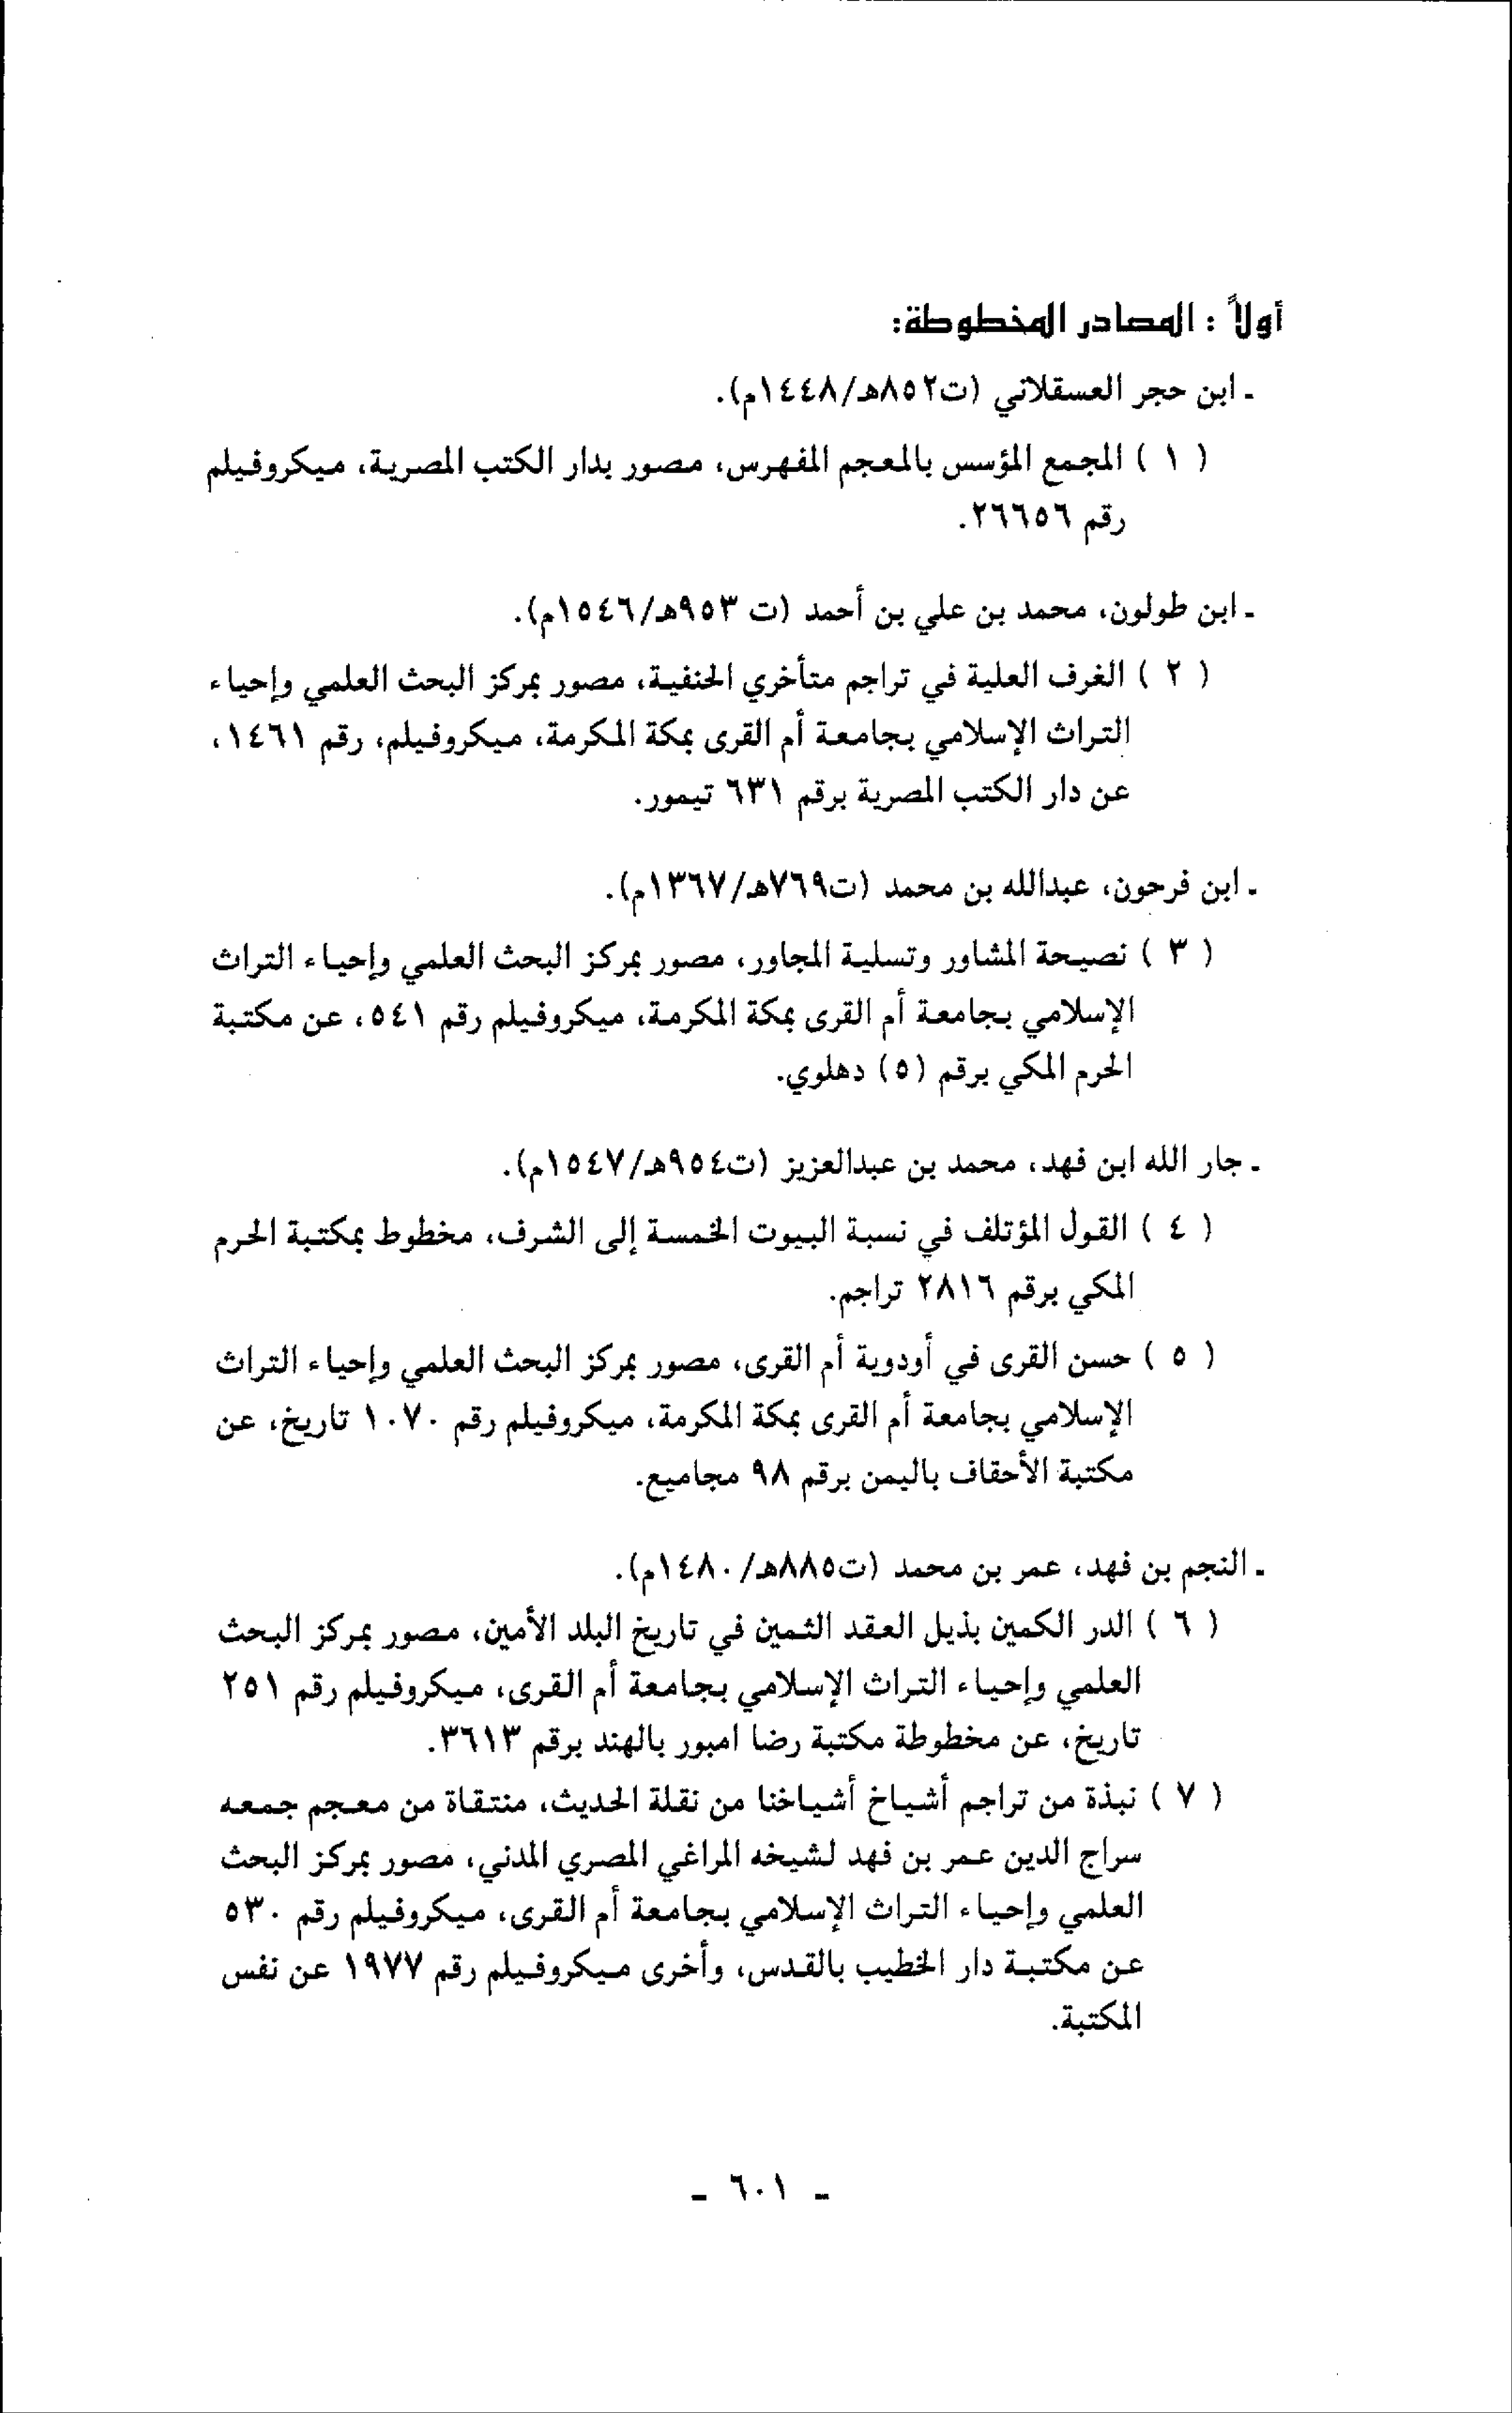 أولاً : المصادر المخطوطة:
ـ ابن حجر العسقلاني (ت٨٥٢هـ/١٤٤٨م).
( ١ ) المجمع المؤسس بالمعجم المفهرس، مصور بدار الكتب المصرية، ميكروفيلم
رقم ٢٦٦٥٦.
ـ ابن طولون، محمد بن علي بن أحمد (ت ٩٥٣هـ/١٥٤٦م).
( ٢ ) الغرف العلية في تراجم متأخري الحنفية، مصور بمركز البحث العلمي وإحياء
التراث الإسلامي بجامعة أم القرى بمكة المكرمة، ميكروفيلم، رقم ١٤٦١،
عن دار الكتب المصرية برقم ٦٣١ تيمور.
ـ ابن فرحون، عبدالله بن محمد (ت٧٦٩هـ/١٣٦٧م).
( ٣ ) نصيحة المشاور وتسلية المجاور، مصور بمركز البحث العلمي وإحياء التراث
الإسلامي بجامعة أم القرى بمكة المكرمة، ميكروفيلم رقم ٥٤١، عن مكتبة
الحرم المكي برقم (٥) دهلوي.
ـ جار الله ابن فهد، محمد بن عبدالعزيز (ت٩٥٤هـ/١٥٤٧م).
( ٤ ) القول المؤتلف في نسبة البيوت الخمسة إلى الشرف، مخطوط بمكتبة الحرم
المكي برقم ٢٨١٦ تراجم.
( ٥ ) حسن القرى في أودوية أم القرى، مصور بمركز البحث العلمي وإحياء التراث
الإسلامي بجامعة أم القرى بمكة المكرمة، ميكروفيلم رقم ١٠٧٠ تاريخ، عن
مكتبة الأحقاف باليمن برقم ٩٨ مجاميع.
ـ النجم بن فهد، عمر بن محمد (ت٨٨٥هـ/١٤٨٠م).
( ٦ ) الدر الكمين بذيل العقد الثمين في تاريخ البلد الأمين، مصور بمركز البحث
العلمي وإحياء التراث الإسلامي بجامعة أم القرى، ميكروفيلم رقم ٢٥١
تاريخ، عن مخطوطة مكتبة رضا امبور بالهند برقم ٣٦١٣.
( ٧ ) نبذة من تراجم أشياخ أشياخنا من نقلة الحديث، منتقاة من معجم جمعه
سراج الدين عمر بن فهد لشيخه المراغي المصري المدني، مصور بمركز البحث
العلمي وإحياء التراث الإسلامي بجامعة أم القرى، ميكروفيلم رقم ٥٣٠
عن مكتبة دار الخطيب بالقدس، وأخرى ميكروفيلم رقم ١٩٧٧ عن نفس
المكتبة.
ـ ٦٠١ ـ